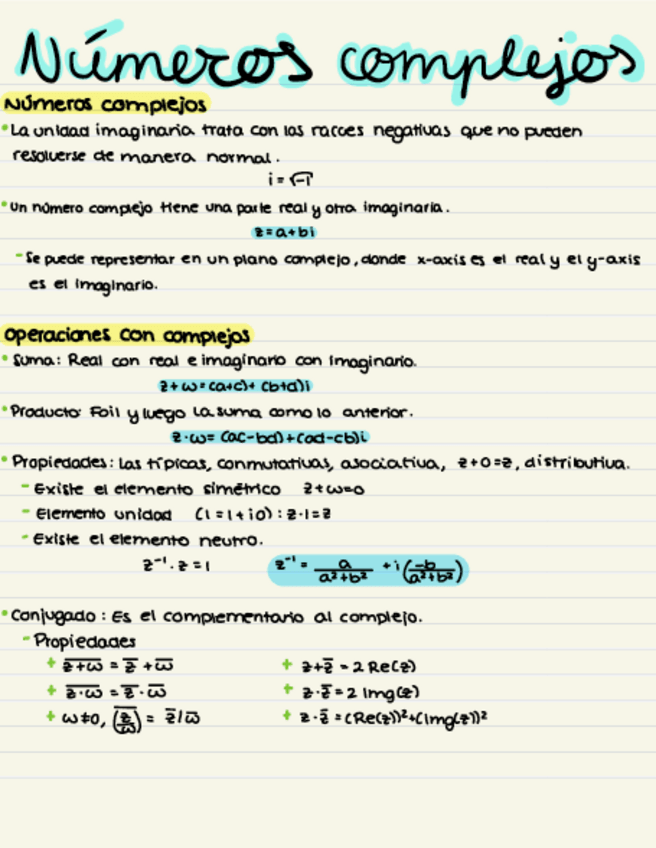 Números complejos
Números complejos
• La unidad imaginaria trata con las raíces negativas que no pueden
resolverse de manera normal.
i = √-1
• Un número complejo tiene una parte real y otra imaginaria.
z = a + bi
- Se puede representar en un plano complejo, donde x-axis es el real y el y-axis
es el imaginario.
Operaciones con complejos
• Suma: Real con real e imaginario con imaginario.
z + ω = (a+c) + (b+d)i
• Producto: Foil y luego la suma como lo anterior.
z · ω = (ac-bd) + (ad-cb)i
• Propiedades: Las típicas, conmutativas, asociativa, z+0=z, distributiva.
- Existe el elemento simétrico z+ω=0
- Elemento unidad (1 = 1 + i0) : z·1=z
- Existe el elemento neutro.
z⁻¹ · z = 1 z⁻¹ = a/(a²+b²) + i(-b/(a²+b²))
• Conjugado : Es el complementario al complejo.
- Propiedades
+ z̅+̅ω̅ = z̅ + ω̅ + z + z̅ = 2 Re(z)
+ z̅·̅ω̅ = z̅ · ω̅ + z · z̅ = 2 Img(z)
+ ω≠0, (z̅/̅ω̅) = z̅/ω̅ + z · z̅ = (Re(z))² + (Img(z))²